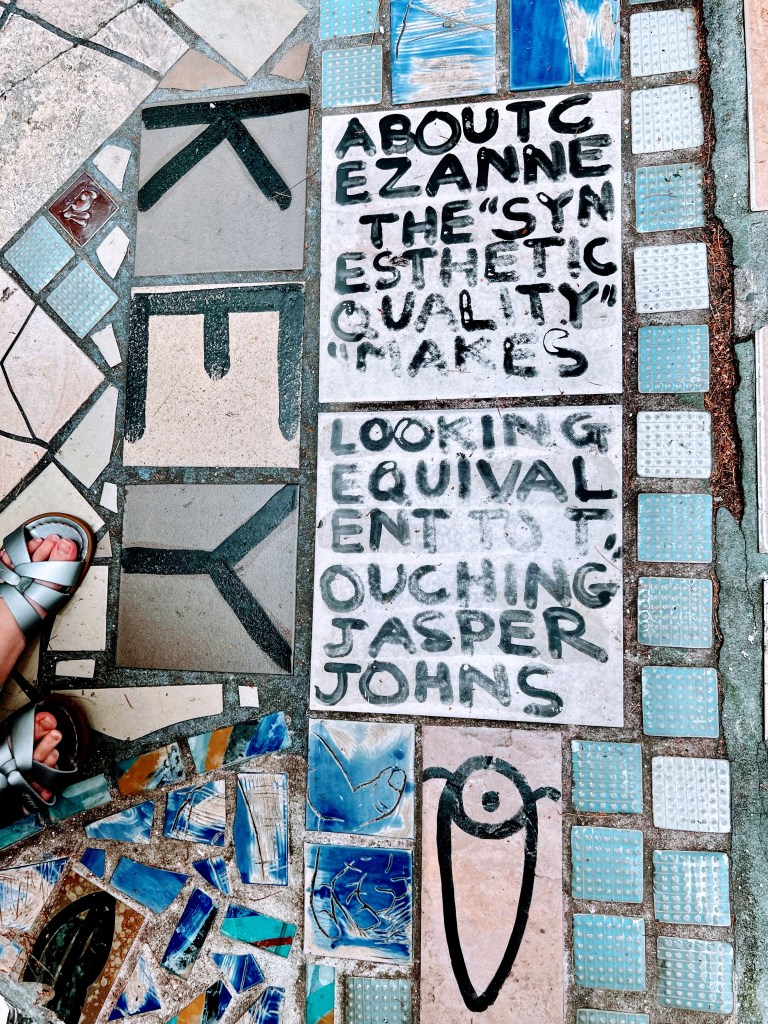 KEY
ABOUTC
EZANNE
THE "SYN
ESTHETIC
QUALITY"
"MAKES
LOOKING
EQUIVAL
ENT TO T
OUCHING"
JASPER
JOHNS